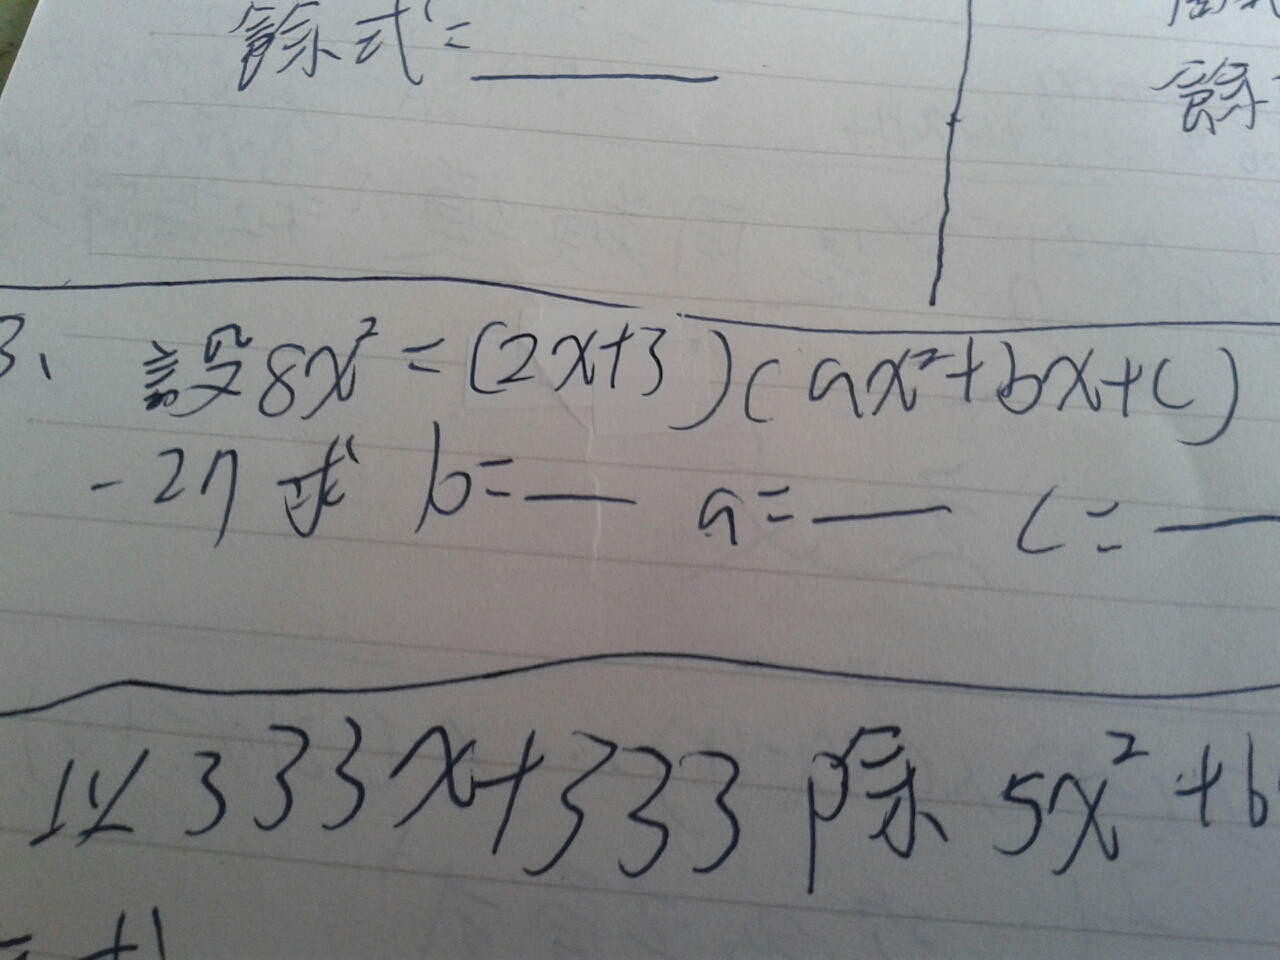 餘式=
餘
3、 設8x²=(2x+3)(ax²+bx+c)
-27 求 b=__ a=__ c=__
以333x+333除5x²+b